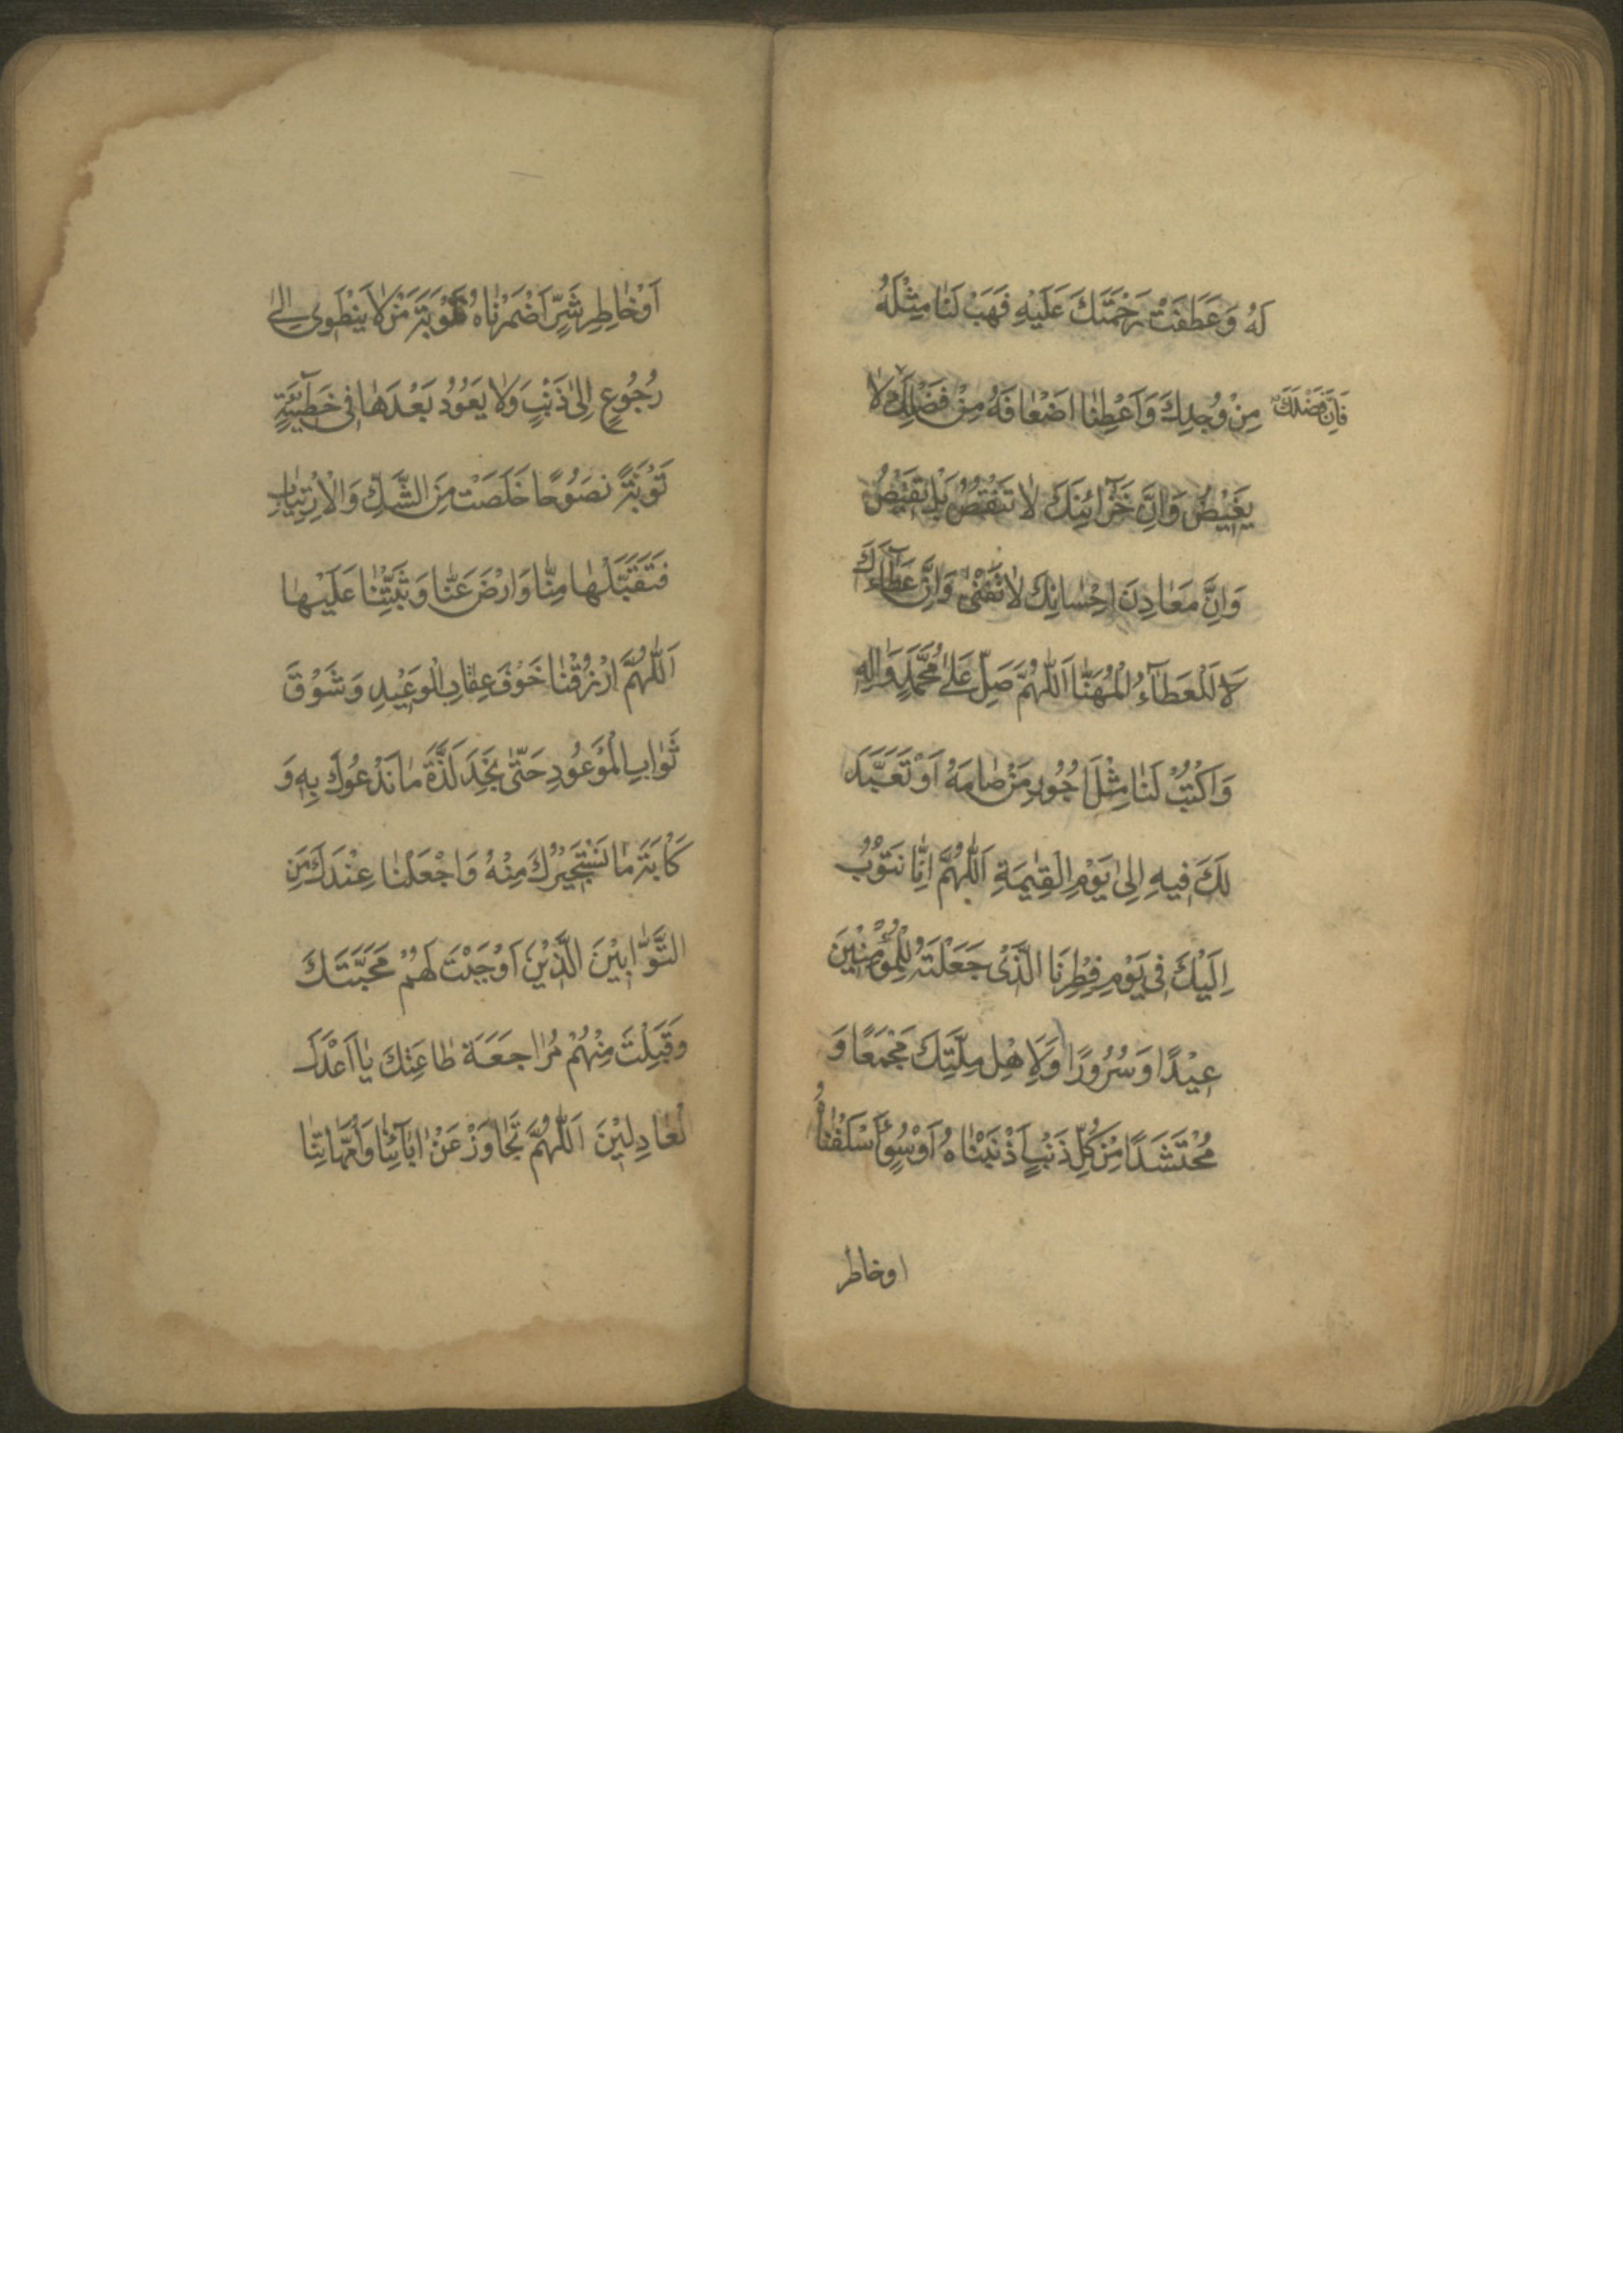 لَهُ وَعَطَفَتْ رَحْمَتُكَ عَلَيْهِ فَهَبْ لَنٰا مِثْلَهُ
مِنْ وُجْدِكَ وَاَعْطِنٰا اَضْعٰافَهُ مِنْ فَضْلِكَ لاٰ
فَاِنَّ فَضْلَكَ
يَغِيْضُ وَاِنَّ خَزٰآئِنَكَ لاٰ تَنْقُصُ بَلْ تَفِيْضُ
وَاِنَّ مَعٰادِنَ اِحْسٰانِكَ لاٰ تَفْنٰى وَاِنَّ عَطٰآءَكَ
لاَ لَلْعَطٰآءُ الْمُهَنّٰا اَللّٰهُمَّ صَلِّ عَلىٰ مُحَمَّدٍ وَاٰلِهِ
وَاكْتُبْ لَنٰا مِثْلَ اُجُورِ مَنْ صٰامَهُ اَوْ تَعَبَّدَ
لَكَ فِيهِ اِلىٰ يَوْمِ الْقِيٰمَةِ اَللّٰهُمَّ اِنّٰا نَتُوْبُ
اِلَيْكَ فِي يَوْمِ فِطْرِنَا الَّذِىْ جَعَلْتَهُ لِلْمُؤْمِنِيْنَ
عِيْدًا وَسُرُورًا وَلِاَهْلِ مِلَّتِكَ مَجْمَعًا وَ
مُحْتَشَدًا مِنْ كُلِّ ذَنْبٍ اَذْنَبْنٰاهُ اَوْ سُوءٍ اَسْلَفْنٰاهُ
اوخاطر
اَوْ خٰاطِرِ شَرٍّ اَضْمَرْنٰاهُ تَوْبَةَ مَنْ لاٰ يَنْطَوِى اِلىٰ
رُجُوْعٍ اِلىٰ ذَنْبٍ وَلاٰ يَعُوْدُ بَعْدَهٰا فِى خَطِيٓئَةٍ
تَوْبَةً نَصُوْحًا خَلَصَتْ مِنَ الشَّكِّ وَالْاِرْتِيٰابِ
فَتَقَبَّلْهٰا مِنّٰا وَارْضَ عَنّٰا وَثَبِّتْنٰا عَلَيْهٰا
اَللّٰهُمَّ ارْزُقْنٰا خَوْفَ عِقٰابِ الْوَعِيْدِ وَشَوْقَ
ثَوٰابِ الْمَوْعُوْدِ حَتّٰى نَجِدَ لَذَّةَ مٰا نَدْعُوْكَ بِهِ وَ
كَاْبَةَ مٰا نَسْتَجِيْرُكَ مِنْهُ وَاجْعَلْنٰا عِنْدَكَ مِنَ
التَّوّٰابِيْنَ الَّذِيْنَ اَوْجَبْتَ لَهُمْ مَحَبَّتَكَ
وَقَبِلْتَ مِنْهُمْ مُرٰاجَعَةَ طٰاعَتِكَ يٰا اَعْدَلَ
لْعٰادِلِيْنَ اَللّٰهُمَّ تَجٰاوَزْ عَنْ اٰبٰآئِنٰا وَاُمَّهٰاتِنٰا